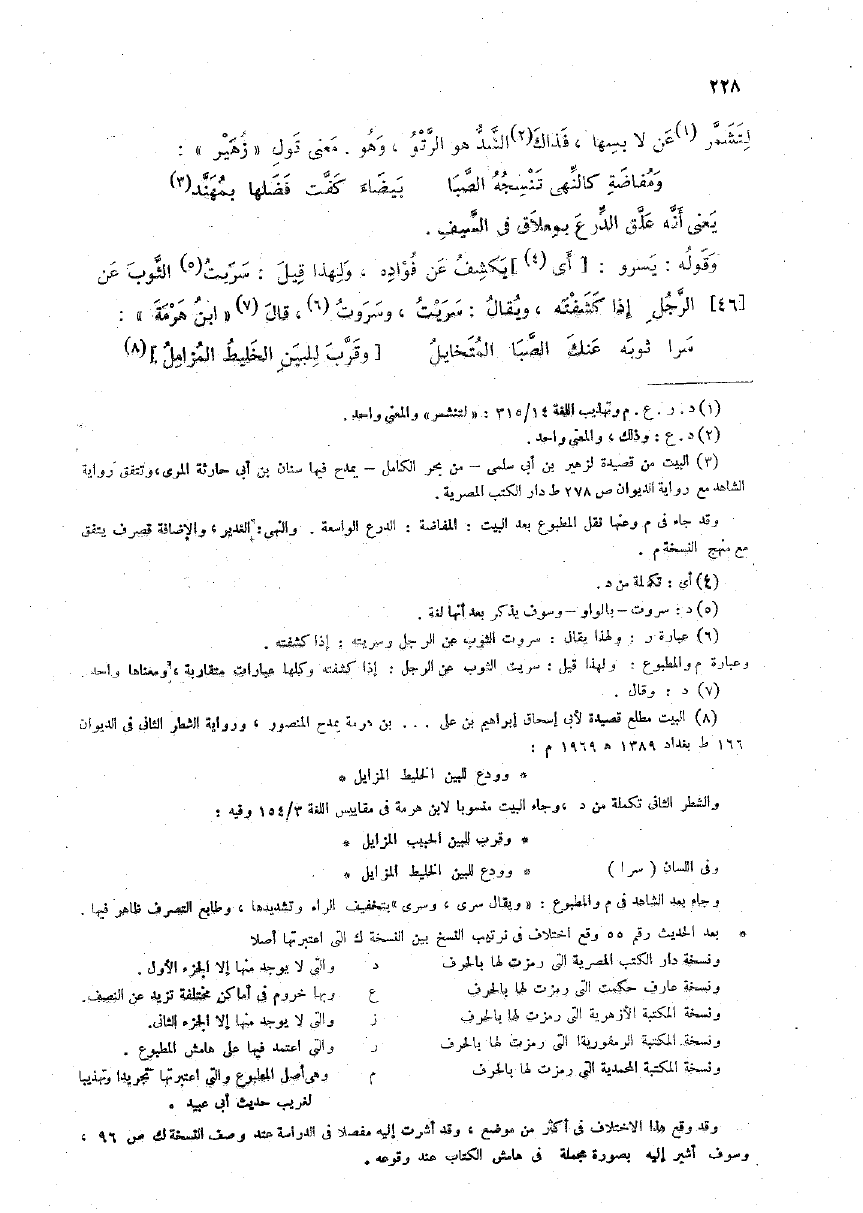 ٢٢٨
لِتَشَمَّر (١) عَن لا بسِها ، فَذاكَ (٢) الشَّدُّ هو الرَّتْوُ ، وَهُو . مَعنى قَولِ « زُهَيْر » :
وَمُفاضَةٍ كالنِّهى تَنْسِجُهُ الصَّبَا بَيضَاءَ كَفَّت فَضَلها بمُهَنَّد (٣)
يَعنى أَنَّه عَلَّق الدِّرعَ بمِعلاقٍ فى السَّيفِ .
وَقَولُه : يَسرو : [ أَى (٤) ] يَكشِفُ عَن فُؤادِه ، وَلِهذا قِيلَ : سَرَيتُ (٥) الثَّوبَ عَن
[٤٦] الرَّجُلِ إذا كَشَفْتَه ، ويُقالُ : سَرَيْتُ ، وسَروتُ (٦) ، قالَ (٧) « ابنُ هَرْمَةَ » :
سَرا ثوبَه عَنكَ الصَّبَا المُتَخايلُ [ وقَرَّبَ لِلبَينِ الخَلِيطُ المُزامِلُ ] (٨)
(١) د . ر . ع . م وتهذيب اللغة ٣١٥/١٤ : « لتنشمر» والمعنى واحد .
(٢) د . ع : وذلك ، والمعنى واحد .
(٣) البيت من قصيدة لزهير بن أبى سلمى – من بحر الكامل – يمدح فيها سنان بن أبى حارثة المرى، وتتفق رواية
الشاهد مع رواية الديوان ص ٢٧٨ ط دار الكتب المصرية .
وقد جاء فى م وعنها نقل المطبوع بعد البيت : المفاضة : الدرع الواسعة . والنهى : الغدير ، والإضافة تصرف يتفق
مع منهج النسخة م .
(٤) أى : تكملة من د .
(٥) د : سروت – بالواو – وسوف يذكر بعد أنها لغة .
(٦) عبارة ر : ولهذا يقال : سروت الثوب عن الرجل وسريته : إذا كشفته .
وعبارة م والمطبوع : ولهذا قيل : سريت الثوب عن الرجل : إذا كشفته وكلها عبارات متقاربة ، ومعناها واحد .
(٧) د : وقال .
(٨) البيت مطلع قصيدة لأبى إسحاق إبراهيم بن على ... بن هرمة يمدح المنصور ، ورواية الشطر الثانى فى الديوان
١٦٦ ط بغداد ١٣٨٩ ه ١٩٦٩ م :
* وودع للبين الخليط المزايل *
والشطر الثانى تكملة من د ، وجاء البيت منسوبا لابن هرمة فى مقاييس اللغة ١٥٤/٣ وفيه :
* وقرب للبين الحبيب المزايل *
وفى اللسان ( سرا ) * وودع للبين الخليط المزايل *
وجاء بعد الشاهد فى م والمطبوع : « ويقال سرى ، وسرى » بتخفيف الراء وتشديدها ، وطابع التصرف ظاهر فيها .
* بعد الحديث رقم ٥٥ وقع اختلاف فى ترتيب النسخ بين النسخة ك التى اعتبرتها أصلا
ونسخة دار الكتب المصرية التى رمزت لها بالحرف د والتى لا يوجد منها إلا الجزء الأول .
ونسخة عارف حكمت التى رمزت لها بالحرف ع وبها خروم فى أماكن مختلفة تزيد عن النصف.
ونسخة المكتبة الأزهرية التى رمزت لها بالحرف ز والتى لا يوجد منها إلا الجزء الثانى.
ونسخة المكتبة الرمفورية التى رمزت لها بالحرف ر والتى اعتمد فيها على هامش المطبوع .
ونسخة المكتبة المحمدية التى رمزت لها بالحرف م وهى أصل المطبوع والتى اعتبرتها تجريدا وتهذيبا
لغريب حديث أبى عبيد .
وقد وقع هذا الاختلاف فى أكثر من موضع ، وقد أشرت إليه مفصلا فى الدراسة عند وصف النسخة ك ص ٩٦ ،
وسوف أشير إليه بصورة مجملة فى هامش الكتاب عند وقوعه .